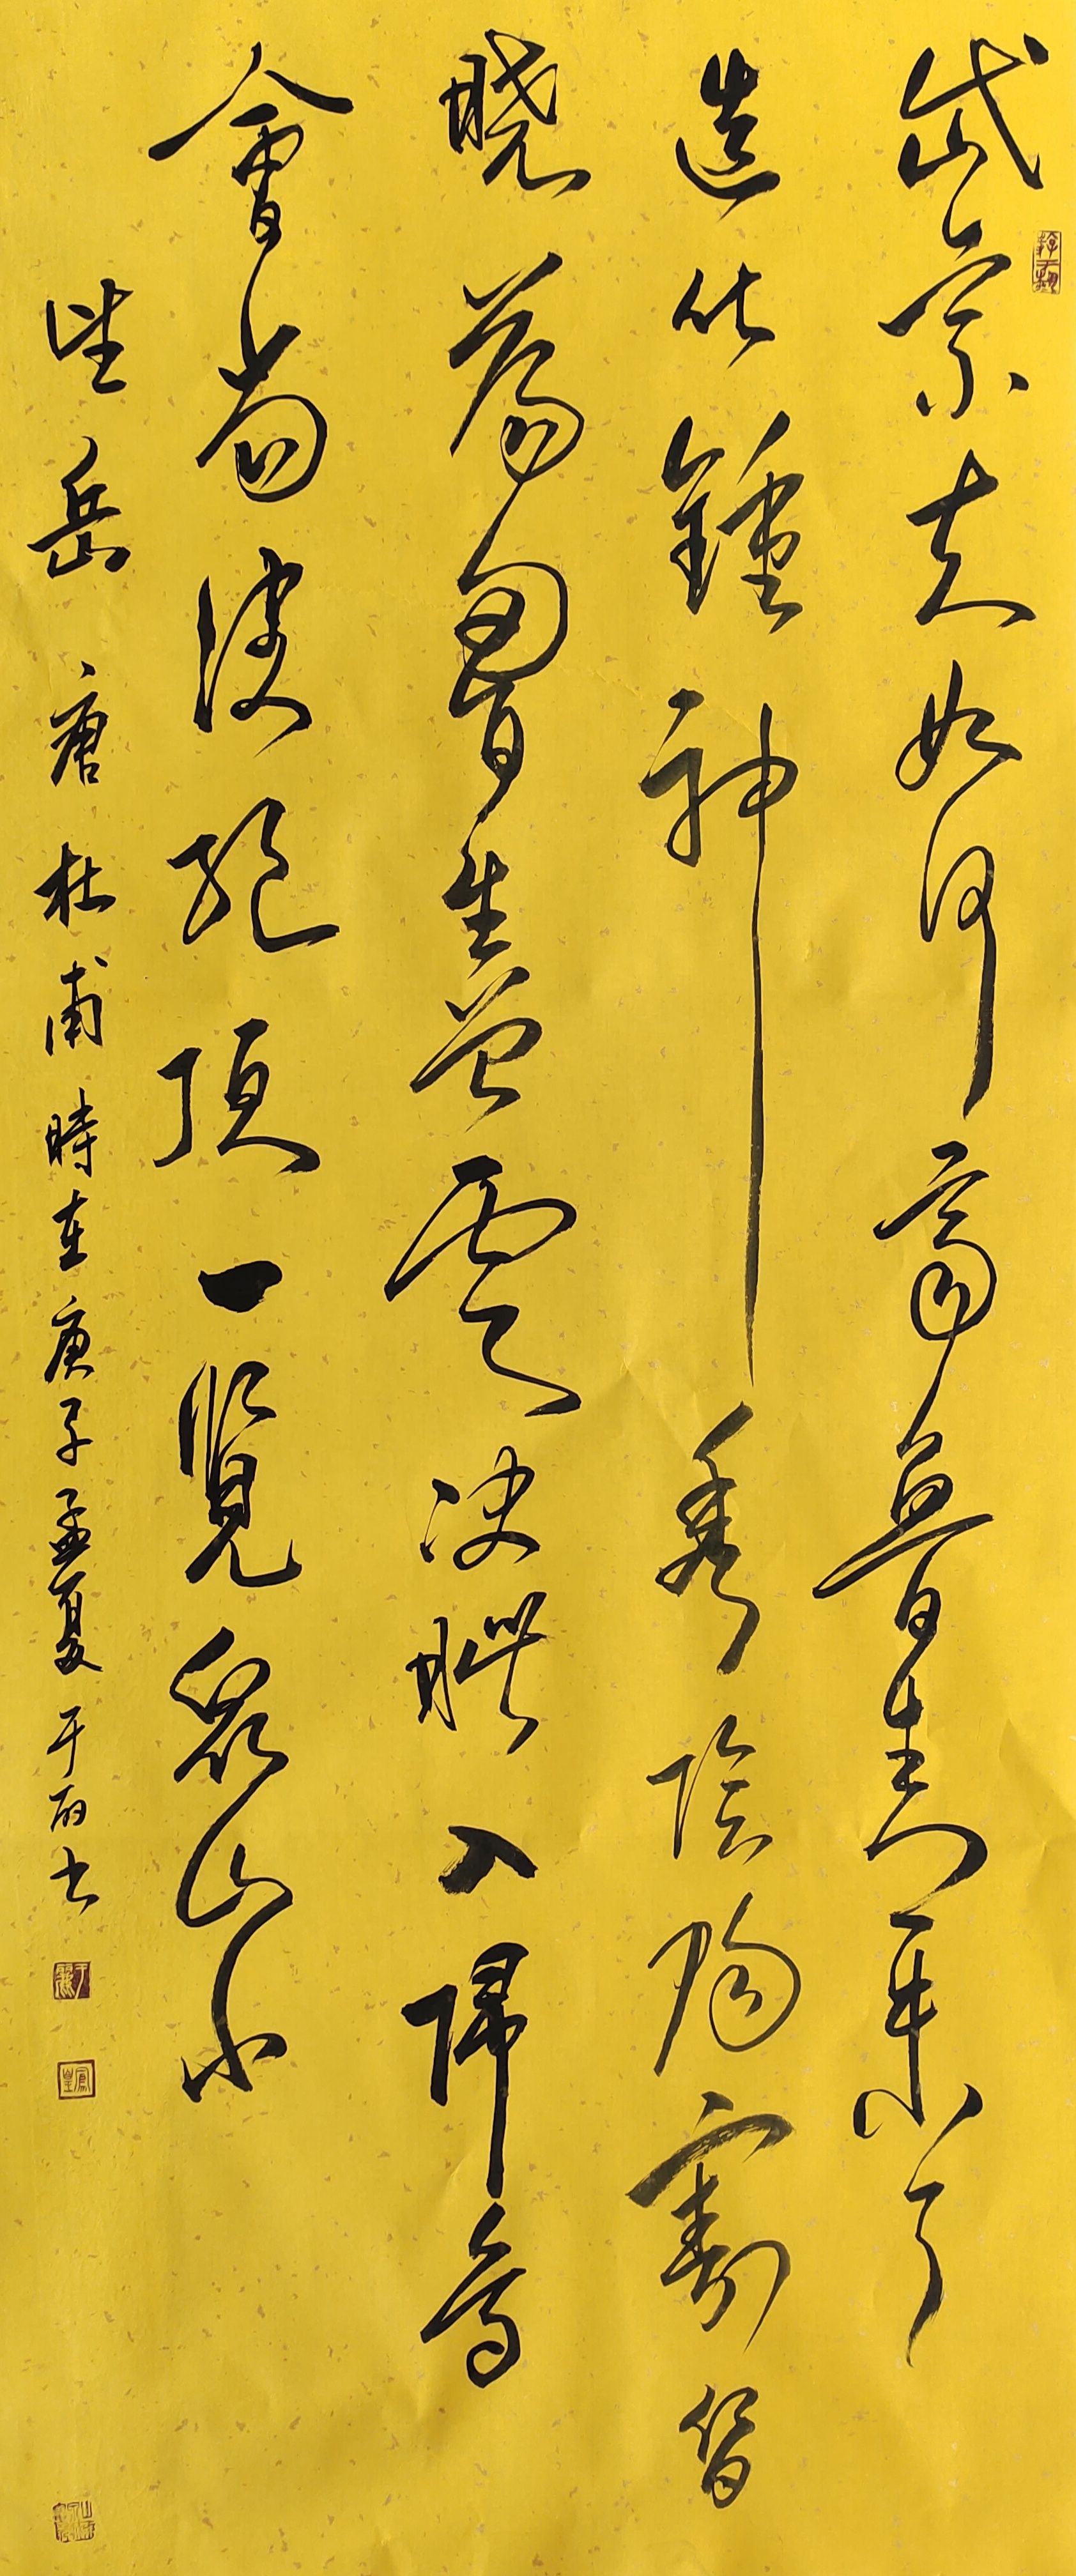 岱宗夫如何齊魯青未了
造化鍾神秀陰陽割昏
曉蕩胷生曽雲决眥入歸鳥
會當淩絕頂一覽衆山小
望岳 唐 杜甫 時在庚子孟夏 于丽书